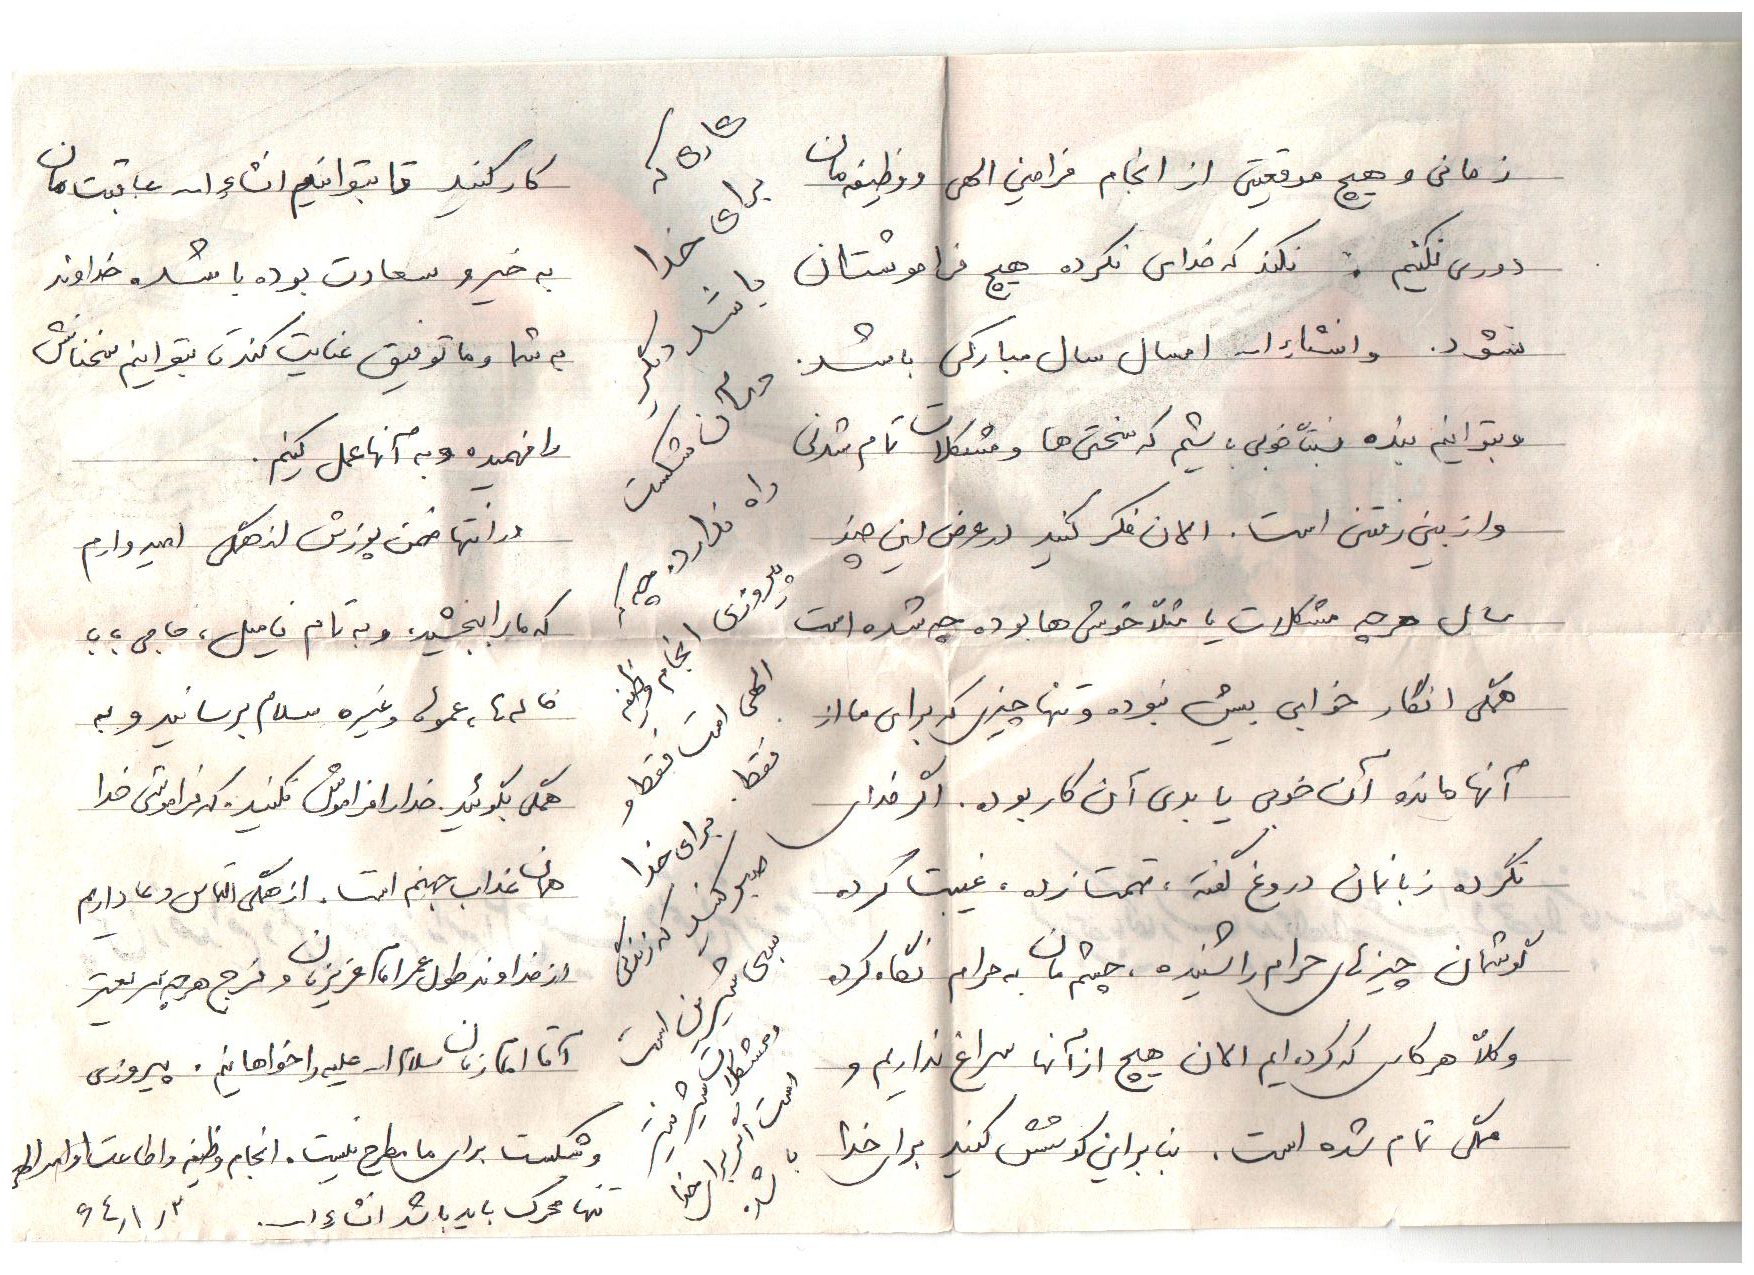 زمانی و هیچ موقعیتی از انجام فرامین الهی و وظیفه‌مان
دوری نکنیم. نکند که خدای نکرده هیچ فراموشتان
نشود. وانشاءا... امسال سال مبارکی باشد.
وبتوانیم بنده خوبی باشیم که سختی‌ها و مشکلات تمام شدنی
واز بین رفتنی است. الان فکر کنید در عرض این چند
سال هرچه مشکلات یا مثلاً خوشی‌ها بوده چه شده است
همگی انگار خوابی بیش نبوده و تنها چیزی که برای ما از
آنها مانده آن خوبی یا بدی آن کار بوده. اگر خدای
نکرده زبانمان دروغ گفته، تهمت زده، غیبت کرده
گوشمان چیزهای حرام را شنیده، چشم‌مان به حرام نگاه کرده
و کلاً هر کاری که کرده‌ایم الان هیچ از آنها سراغ نداریم و
همگی تمام شده است. بنابراین کوشش کنید برای خدا
کار کنید تا بتوانیم انشاءا... عاقبت‌مان
به خیر و سعادت بوده باشد خداوند
به شما و ما توفیق عنایت کند تا بتوانیم سخنانش
را فهمیده و به آنها عمل کنیم.
در انتها ضمن پوزش از همگی امیدوارم
که ما را ببخشید. و به تمام فامیل، حاجی بابا
خاله‌ها، عموها وغیره سلام برسانید و به
همگی بگوئید. خدا را فراموش نکنید. که فراموشی خدا
همان عذاب جهنم است. از همگی التماس دعا داریم
از خداوند طول عمر امام عزیزمان و فرج هرچه سریعتر
آقا امام زمان سلام ا... علیه را خواهانیم. پیروزی
و شکست برای ما مطرح نیست. انجام وظیفه و اطاعت اوامر الهی
تنها محرک باید باشد انشاءا...
۶۴/۱/۳
کاری که
برای خدا
باشد دیگر
در آن شکست
راه ندارد. چه
پیروزی انجام وظیفه
الهی است فقط و
فقط. برای خدا
صبر کنید که زندگی
بسی شیرین است
ومشکلات شیرین‌تر
است اگر برای خدا
باشد.